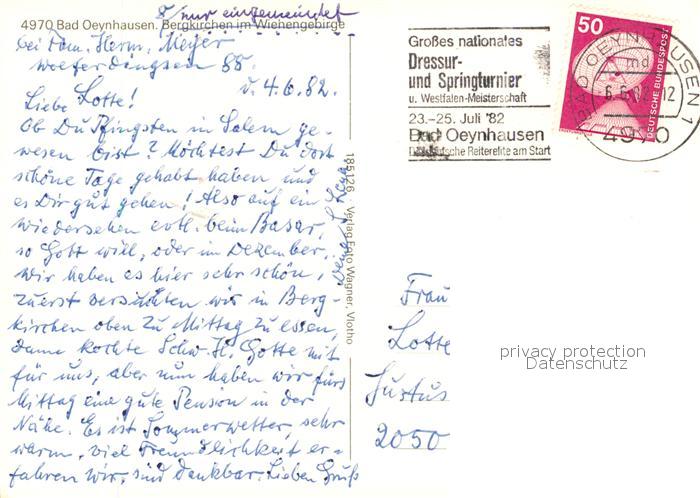 nur eingemeindet
4970 Bad Oeynhausen. Bergkirchen im Wiehengebirge
bei Fam. Herm. Meyer
Wolferdingsen 88.
d. 4.6.82.
Liebe Lotte!
Ob Du Pfingsten in Salem ge-
wesen bist? Möchtest Du dort
schöne Tage gehabt haben und
es Dir gut gehen! Also auf ein
wiedersehen evtl. beim Basar,
so Gott will, oder im Dezember.
Wir haben es hier sehr schön,
zuerst versuchten wir in Berg-
kirchen oben zu Mittag zu essen,
dann kochte Schw. H. Gotte mit
für uns, aber nun haben wir fürs
Mittag eine gute Pension in der
Nähe. Es ist Sommerwetter, sehr
warm, viel Freundlichkeit er-
fahren wir, sind dankbar. Lieben Gruß
Deine
185/126 Verlag Foto Wagner, Vlotho
Großes nationales
Dressur-
und Springturnier
u. Westfalen-Meisterschaft
23.-25. Juli '82
Bad Oeynhausen
Die deutsche Reiterelite am Start
50
DEUTSCHE BUNDESPOST
BAD OEYNHAUSEN 1
md
6.6.82-12
4970
Frau
Lotte
Justus
2050
privacy protection
Datenschutz